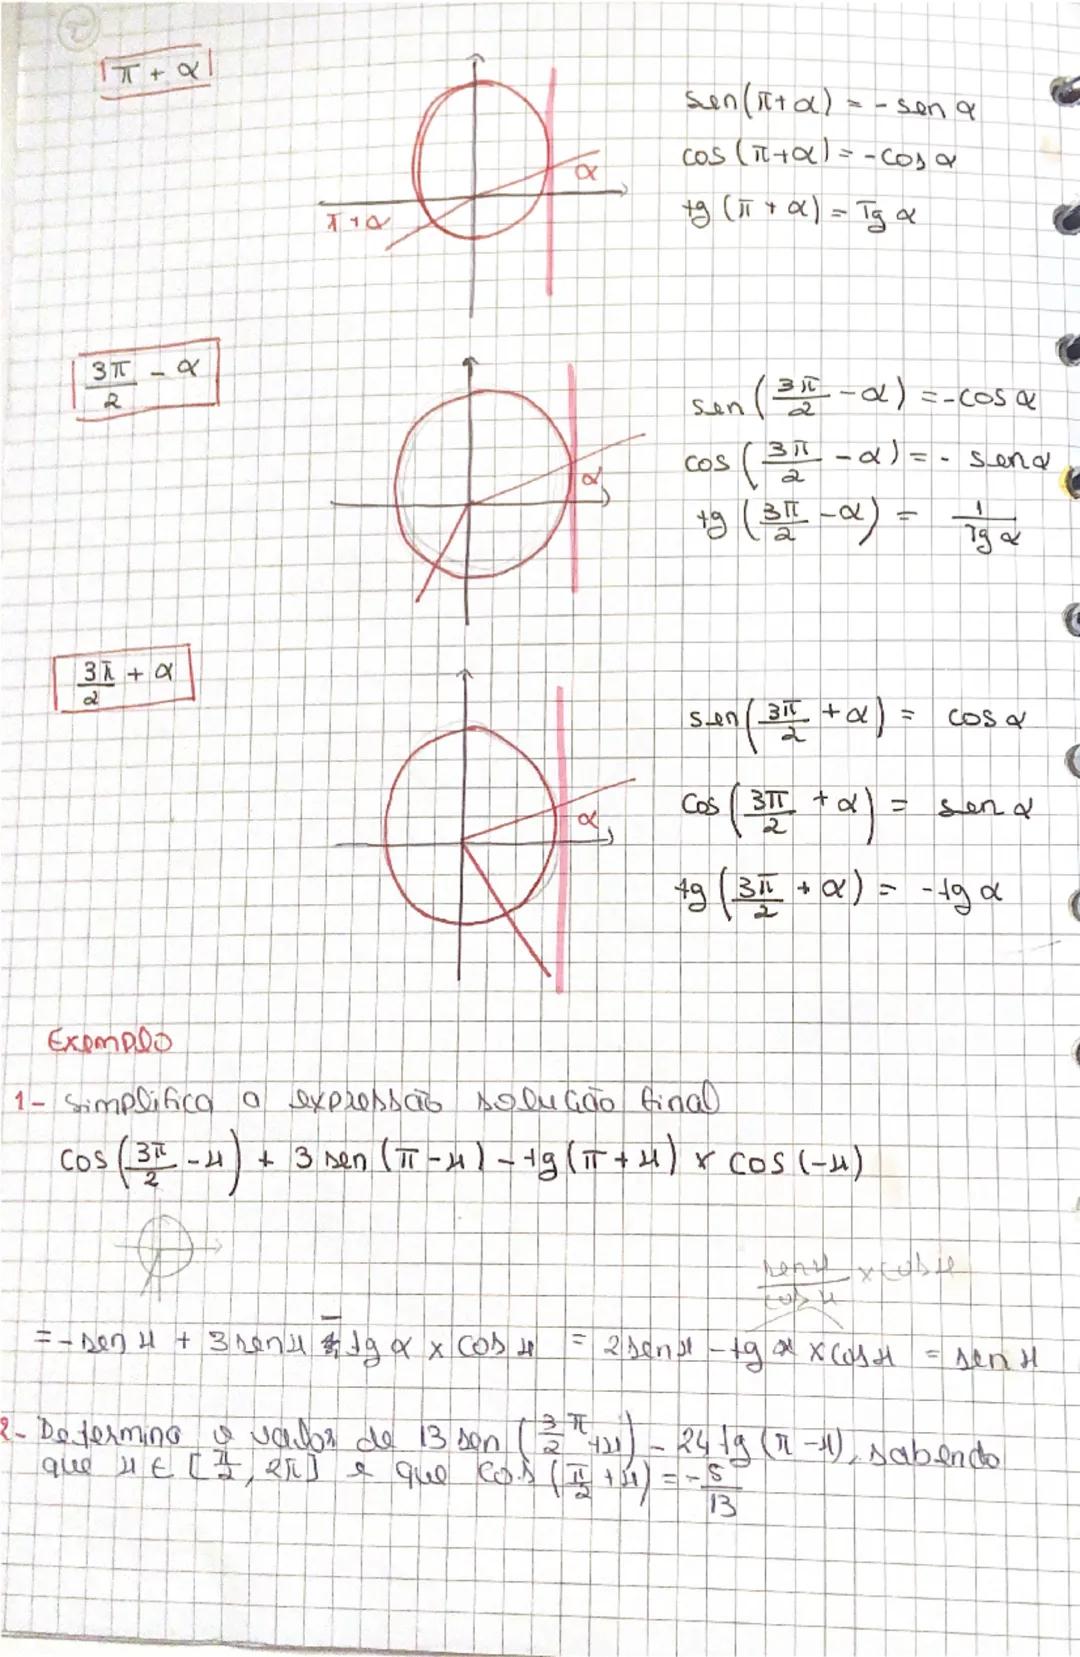 2
π + α
sen(π+α) = - sen α
cos (π+α) = - cos α
tg (π + α) = Tg α
α
π + α
3π/2 - α
sen (3π/2 - α) = - cos α
cos (3π/2 - α) = - sen α
tg (3π/2 - α) = 1/Tg α
α
3π/2 + α
sen (3π/2 + α) = cos α
cos (3π/2 + α) = sen α
tg (3π/2 + α) = - tg α
α
Exemplo
1- Simplifica a expressão solução final
cos (3π/2 - x) + 3 sen (π - x) - tg (π + x) x cos (-x)
sen x/cos x x cos x
= - sen x + 3 sen x - tg α x cos x = 2 sen x - tg x x cos x = sen x
2- Determina o valor de 13 sen (3π/2 + x) - 24 tg (π - x), sabendo
que x ∈ [π/2, 2π] e que cos (π/2 + x) = - 5/13